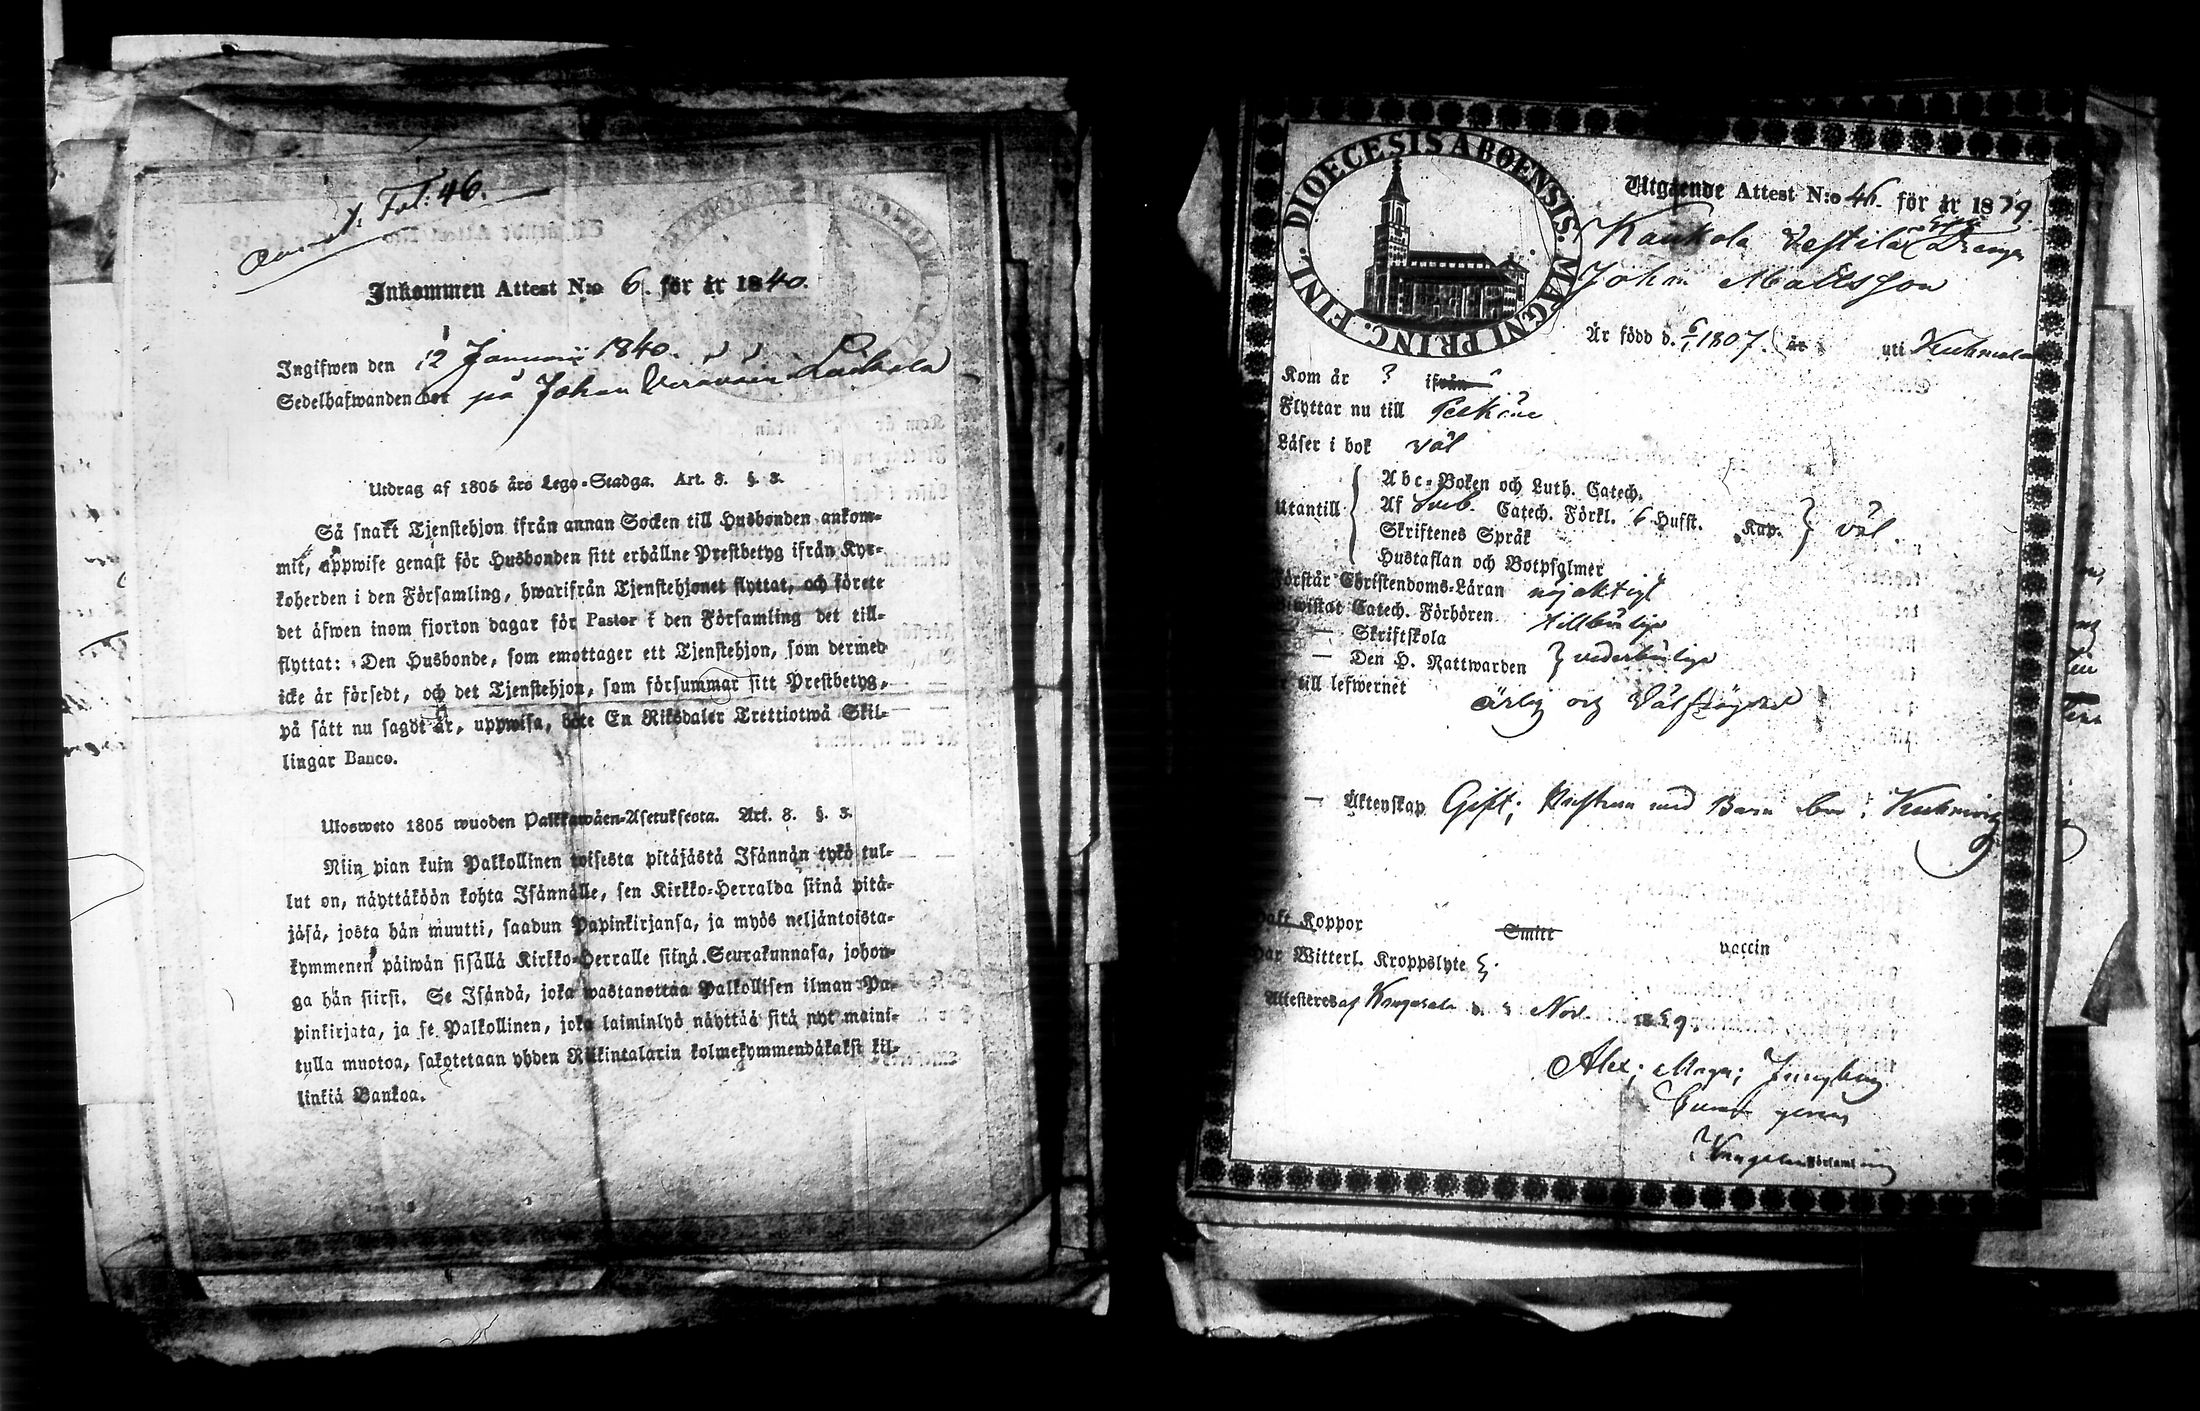 Fol: 46.
Inkommen Attest N:o 6. för år 1840.
Ingifwen den 12 Januarii 1840.
Sedelhafwanden bor på Johan
Utdrag af 1805 års Lego-Stadga. Art. 8. §. 3.
Så snakt Tjenstehjon ifrån annan Socken till Husbonden ankom-
mit, uppwise genast för Husbonden sitt erhållne Prestbetyg ifrån Kyr-
koherden i den Församling, hwarifrån Tjenstehjonet flyttat, och förete
det äfwen inom fjorton dagar för Pastor i den Församling det till-
flyttat: Den Husbonde, som emottager ett Tjenstehjon, som dermed
icke är försedt, och det Tjenstehjon, som försummar sitt Prestbetyg,
på sätt nu sagdt är, uppwisa, böte En Riksdaler Trettiotwå Skil-
lingar Banco.
Ulosweto 1805 wuoden Palkkawäen-Asetuksesta. Art. 8. §. 3.
Niin pian kuin Palkollinen toisesta pitäjästä Isännän tykö tul-
lut on, näyttäköön kohta Isännälle, sen Kirkko-Herralda siinä pitä-
jäsä, josta hän muutti, saadun Papinkirjansa, ja myös neljäntoista-
kymmenen päiwän sisällä Kirkko-Herralle siinä Seurakunnasa, johon-
ga hän siirsi. Se Isändä, joka wastanottaa Palkollisen ilman Pa-
pinkirjata, ja se Palkollinen, joka laiminlyö näyttää sitä nyt maini-
tulla muotoa, sakotetaan yhden Riikintalarin kolmekymmendäkaksi kil-
linkiä Bankoa.
DIOECESIS ABOENSIS. MAGNI PRINC. FINL.
Utgående Attest N:o 46. för år 1839.
Kaukola Drängen
Johan Mattsson
Är född d. 1807. uti
Kom år ? ifrån
Flyttar nu till
Läser i bok väl
Utantill
Abc-Boken och Luth. Catech.
Af Sveb. Catech. Förkl. 6 Hufst. Kap. väl
Skriftenes Språk
Hustaflan och Botpsalmer
Förstår Christendoms-Läran nöjaktigt
Bewistat Catech. Förhören
— Skriftskola
— Den H. Nattwarden
till lefwernet
ärlig och välfrägdad
— Äktenskap Gift; med Barn
Haft Koppor Smitt vaccin
Har Witterl. Kroppslyte
Attesteras af Kangasala d. Nov. 1839.
Alex: Magn:
Kangasala Församling